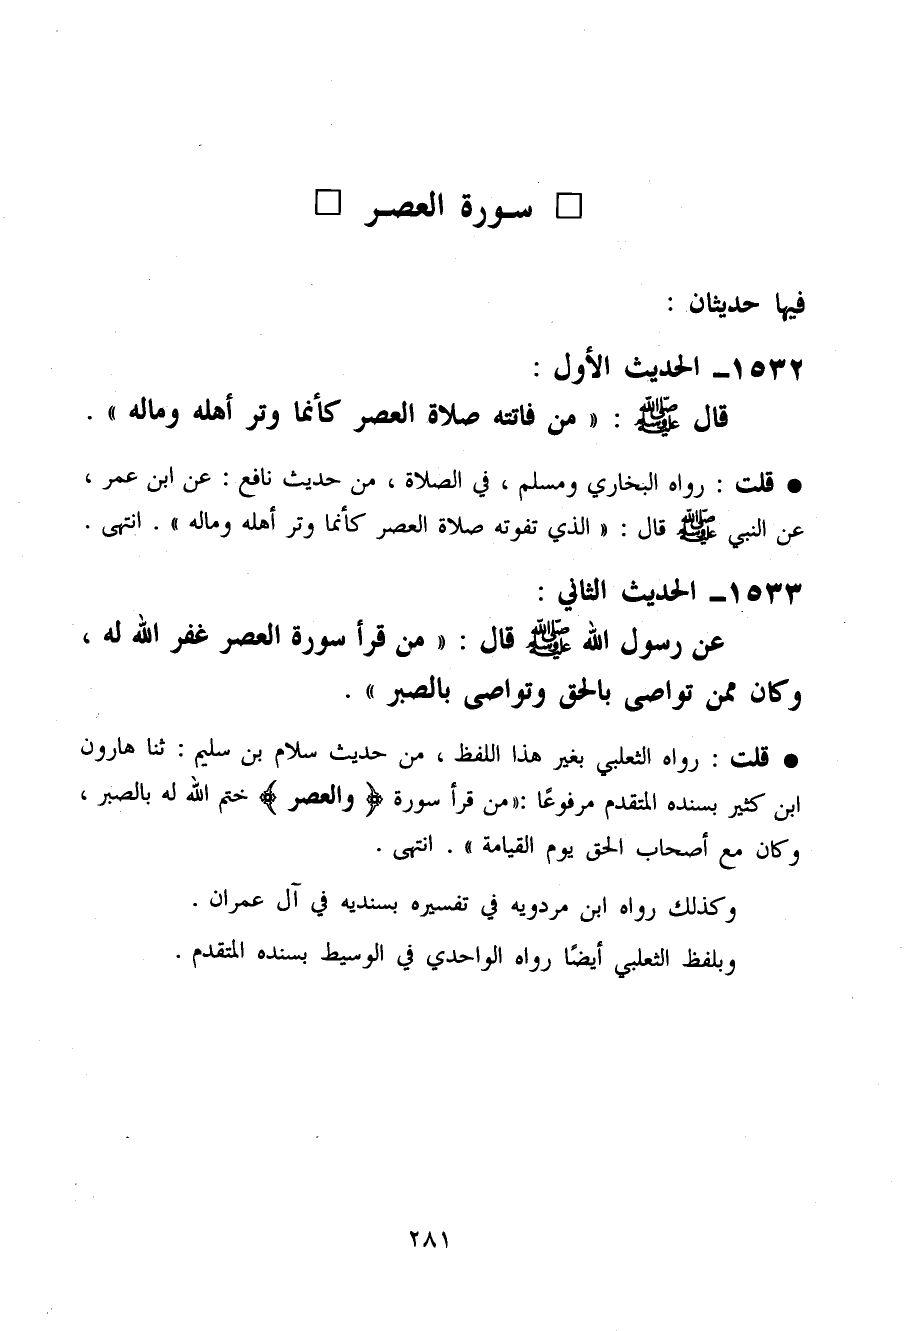 □ سورة العصر □
فيها حديثان :
١٥٣٢ـ الحديث الأول :
قال ﷺ : « من فاتته صلاة العصر كأنما وتر أهله وماله » .
● قلت : رواه البخاري ومسلم ، في الصلاة ، من حديث نافع : عن ابن عمر ،
عن النبي ﷺ قال : « الذي تفوته صلاة العصر كأنما وتر أهله وماله » . انتهى .
١٥٣٣ـ الحديث الثاني :
عن رسول الله ﷺ قال : « من قرأ سورة العصر غفر الله له ،
وكان ممن تواصى بالحق وتواصى بالصبر » .
● قلت : رواه الثعلبي بغير هذا اللفظ ، من حديث سلام بن سليم : ثنا هارون
ابن كثير بسنده المتقدم مرفوعًا :«من قرأ سورة ﴿ والعصر ﴾ ختم الله له بالصبر ،
وكان مع أصحاب الحق يوم القيامة » . انتهى .
وكذلك رواه ابن مردويه في تفسيره بسنديه في آل عمران .
وبلفظ الثعلبي أيضًا رواه الواحدي في الوسيط بسنده المتقدم .
٢٨١